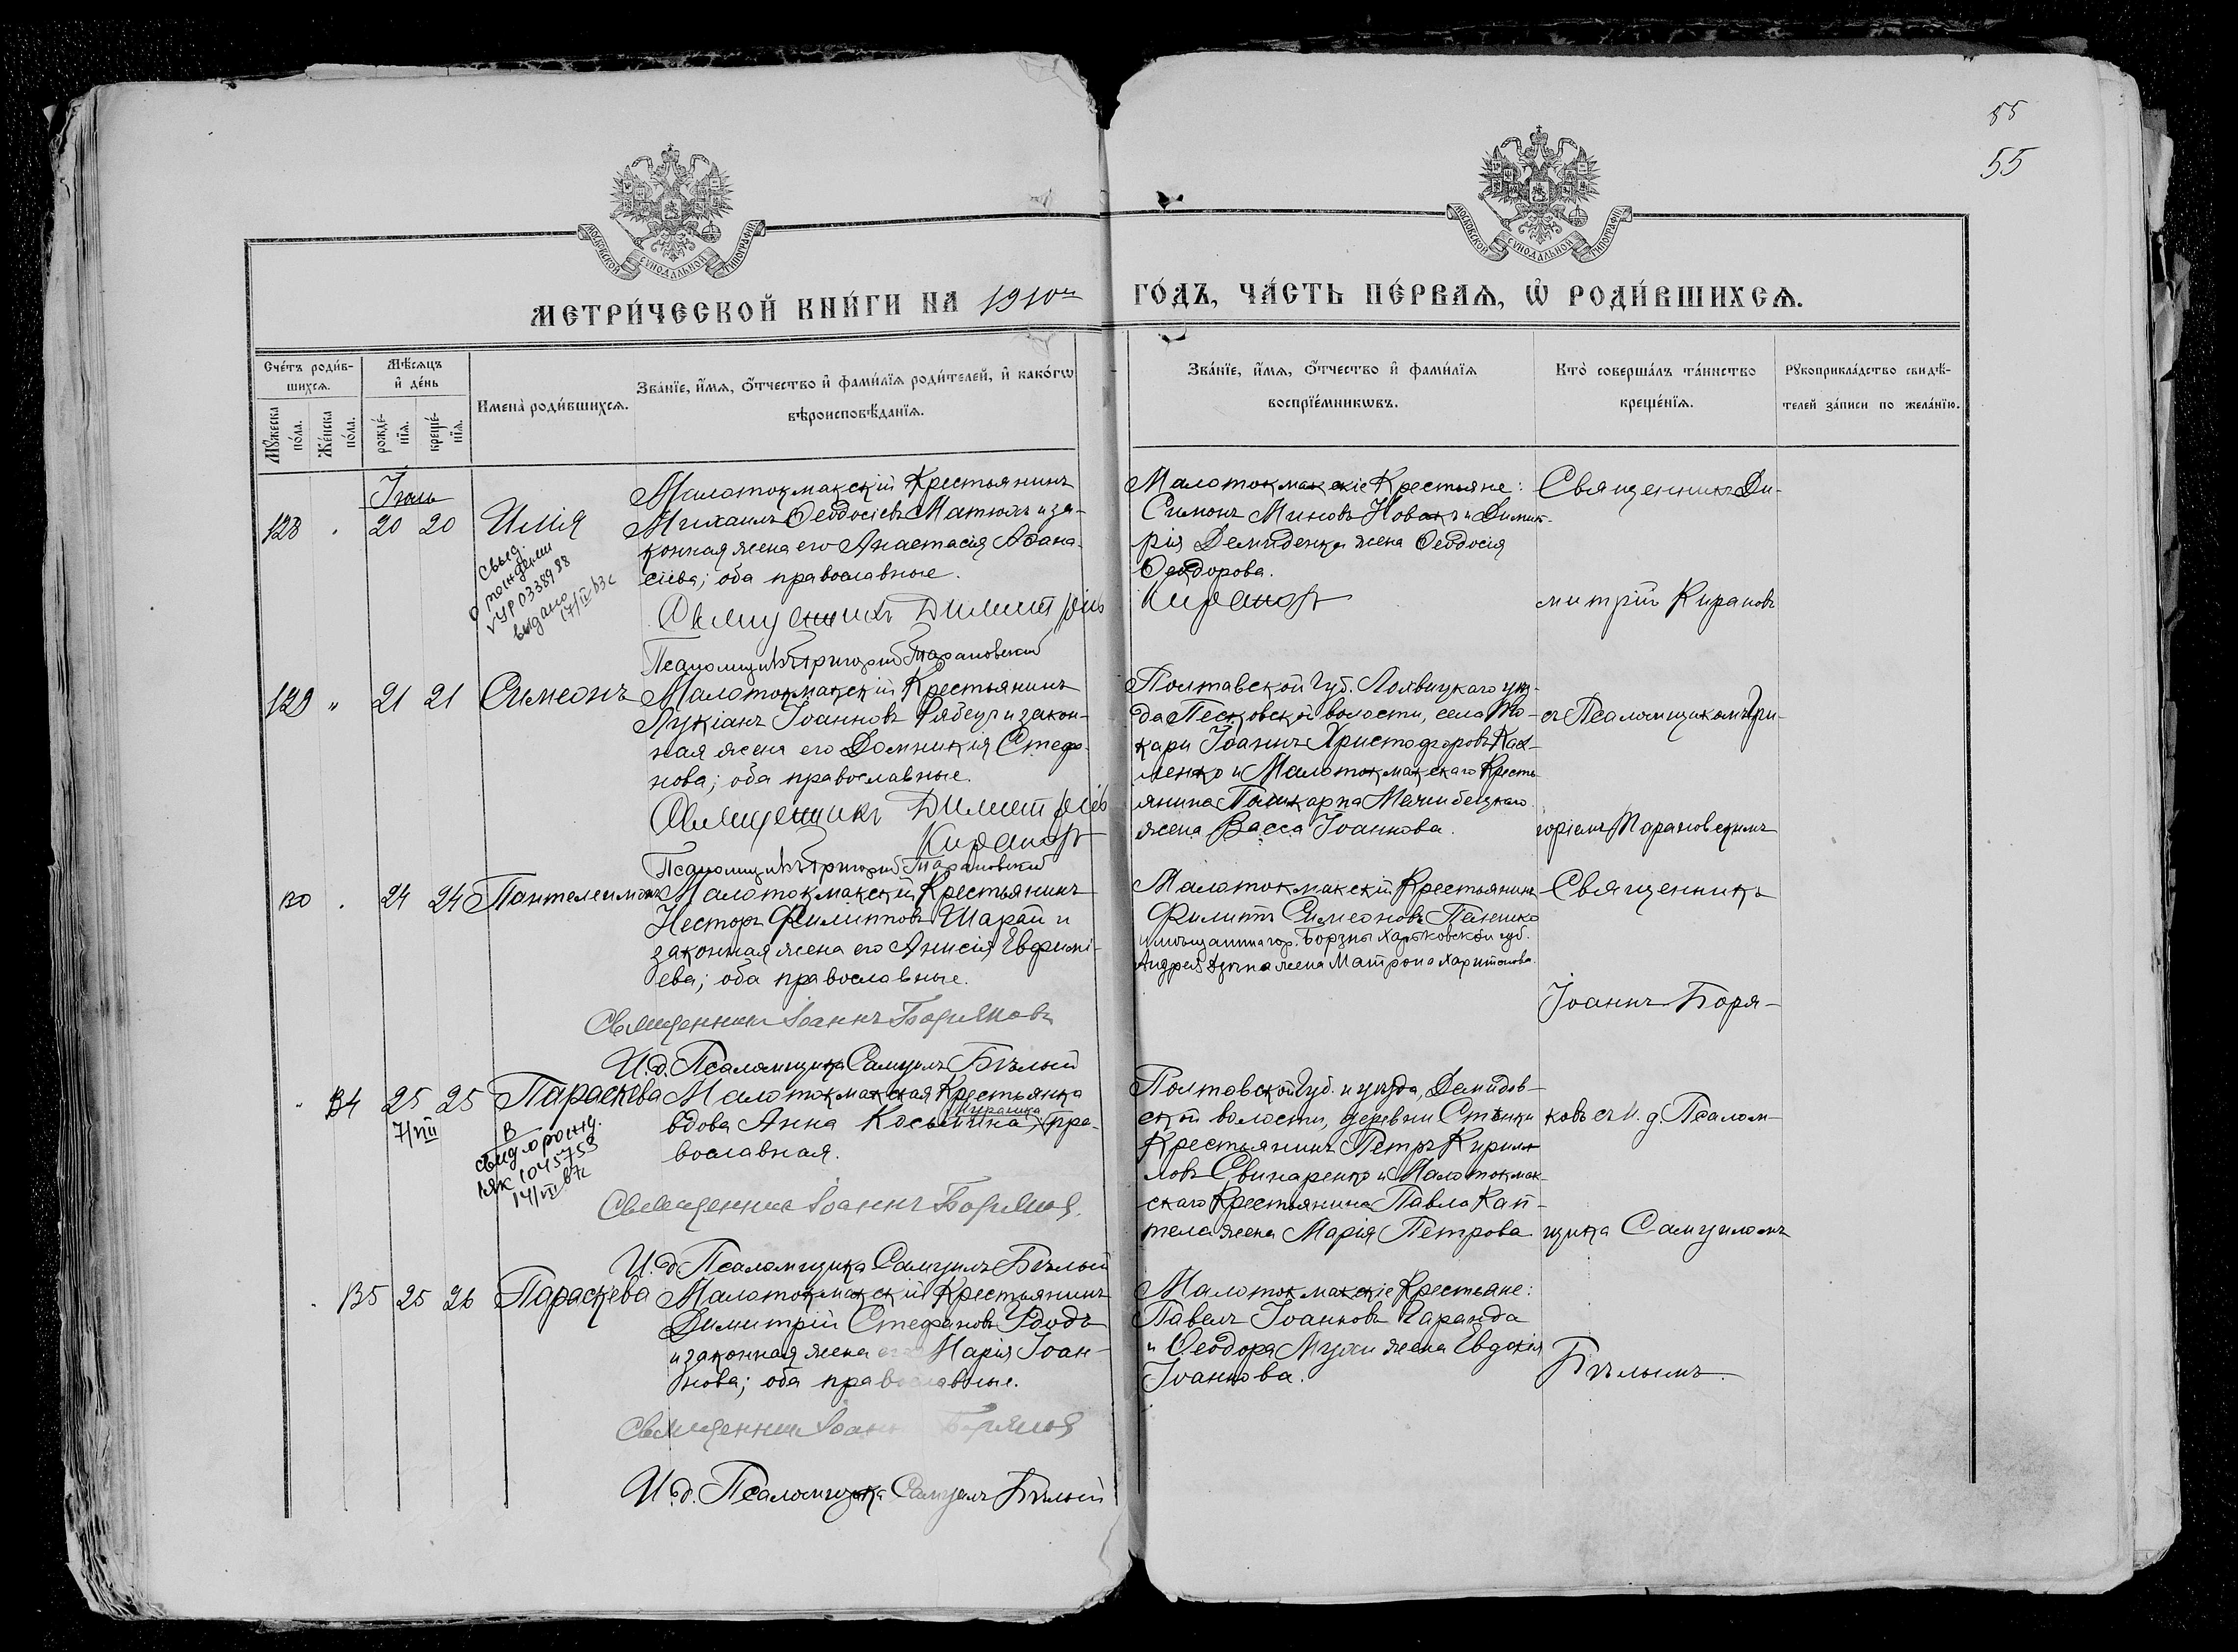 55
55
МОСКОВСКОЙ СУНОДАЛЬНОЙ ТИПОГРАФІИ
МОСКОВСКОЙ СУНОДАЛЬНОЙ ТИПОГРАФІИ
МЕТРИ́ЧЕСКОЙ КНИ́ГИ НА 1910й ГО́ДЪ, ЧА́СТЬ ПЕ́РВАѦ, Ѽ РОДИ́ВШИХСѦ.
Счéтъ роди́в-
шихсѧ.
Мꙋ́жеска по́ла.
Же́нска по́ла.
Мѣ́сѧцъ
и҆ де́нь
рожде́-
нїѧ.
креще́-
нїѧ.
И҆мена̀ роди́вшихсѧ.
Зва́нїе, и҆́мѧ, ѻ҆́тчество и҆ фами́лїѧ роди́телей, и҆ како́гѡ
вѣроисповѣ́данїѧ.
Зва́нїе, и҆́мѧ, ѻ҆́тчество и҆ фами́лїѧ
воспрїе́мникѡвъ.
Кто̀ соверша́лъ та́инство
креще́нїѧ.
Рꙋкоприкла́дство свидѣ́-
телей за́писи по жела́нїю.
Іюль
128 " 20 20 Илія
Свид.
о рождении
VУР 0338988
выдано
17/IV 63г
Малотокмакскій Крестьянинъ
Михаилъ Ѳеодосіевъ Матюхъ и за-
конная жена его Анастасія Аѳана-
сіева; оба православные.
Священникъ Димитрій Кирановъ
Псаломщикъ Григорій Тарановскій
Малотокмакскіе Крестьяне:
Симонъ Миновъ Новакъ и Димит-
рія Демиденка жена Ѳеодосія
Ѳеодорова.
Священникъ Ди-
митрій Кирановъ
129 " 21 21 Симеонъ
Малотокмакскій Крестьянинъ
Лукіанъ Іоанновъ Рябецъ и закон-
ная жена его Домникія Стефа-
нова; оба православные.
Священникъ Димитрій
Кирановъ
Псаломщикъ Григорій Тарановскій
Полтавской Губ. Лохвицкаго уѣз-
да Песковской волости, села То-
кари Іоаннъ Христофоровъ
и Малотокмакскаго Кресть-
янина Поликарпа
жена Васса Іоаннова.
съ Псаломщикомъ Гри-
горіемъ Тарановскимъ
130 " 24 24 Пантелеимонъ
Малотокмакскій Крестьянинъ
Несторъ Филипповъ Шарай и
законная жена его Анисія Евфимі-
ева; оба православные.
Священникъ Іоаннъ Боряковъ
И. д. Псаломщика Самуилъ Бѣлый
Малотокмакскій Крестьянинъ
Филиппъ Симеоновъ
и мѣщанина гор. Борзны Харьковской губ.
Андрея жена Матрона Харитонова.
Священникъ
Іоаннъ Боря-
" 134 25 25 Параскева
7/VII
В
свид о рожд.
ІЯК 1045753
14/VII 67г
Малотокмакская Крестьянка
вдова Анна Косьмина, пра-
вославная.
Священникъ Іоаннъ Боряковъ
И. д. Псаломщика Самуилъ Бѣлый
Полтавской Губ. и уѣзда, Демидов-
ской волости, деревни Стѣнки
Крестьянинъ Петръ Кирил-
ловъ Свинаренко и Малотокмак-
скаго Крестьянина Павла Кап-
тела жена Марія Петрова
ковъ съ И. д. Псалом-
щика Самуиломъ
" 135 25 26 Параскева
Малотокмакскій Крестьянинъ
Димитрій Стефановъ Удодъ
и законная жена его Марія Іоан-
нова; оба православные.
Священникъ Іоаннъ Боряковъ
И. д. Псаломщика Самуилъ Бѣлый
Малотокмакскіе Крестьяне:
Павелъ Іоанновъ Чаранда
и Ѳеодора Мухи жена Евдокія
Іоаннова.
Бѣлымъ.